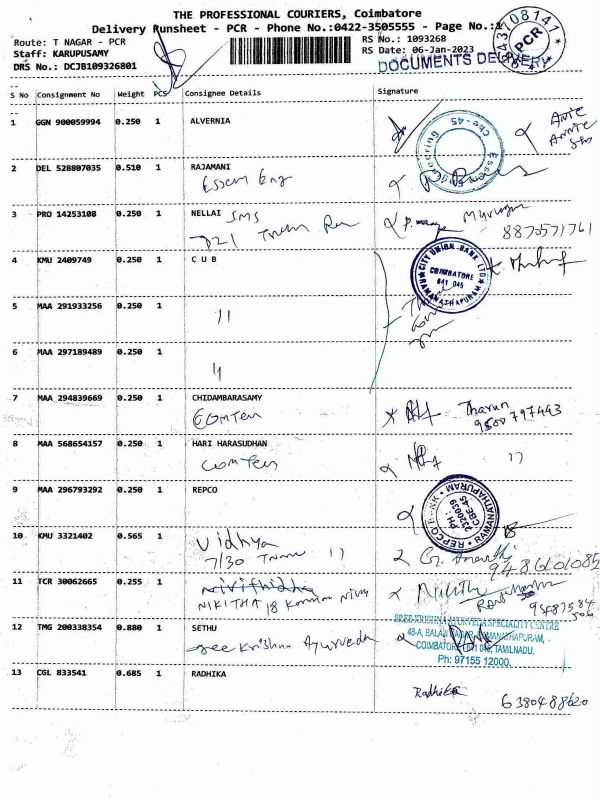 THE PROFESSIONAL COURIERS, Coimbatore
Delivery Runsheet - PCR - Phone No.:0422-3505555 - Page No.:1
Route: T NAGAR - PCR
RS No.: 1093268
Staff: KARUPUSAMY
RS Date: 06-Jan-2023
DRS No.: DCJB109326801
DOCUMENTS DELIVERY
PCR
S No Consignment No Weight PCS Consignee Details Signature
1 GGN 900059994 0.250 1 ALVERNIA
2 DEL 528807035 0.510 1 RAJAMANI
Essem Eng
Essem Engineering Cbe-45
3 PRO 14253108 0.250 1 NELLAI SMS
Murugan
8870571761
4 KMU 2409749 0.250 1 C U B
CITY UNION BANK LTD
COIMBATORE
641 045
RAMANATHAPURAM
5 MAA 291933256 0.250 1
11
6 MAA 297189489 0.250 1
7 MAA 294839669 0.250 1 CHIDAMBARASAMY
Tharun
8 MAA 568654157 0.250 1 HARI HARASUDHAN
9 MAA 296793292 0.250 1 REPCO
REPCO BANK
PH: 2320039
CBE-45
RAMANATHAPURAM
10 KMU 3321402 0.565 1 Vidhya
7/30
9486101085
11 TCR 30062665 0.255 1
NIKITHA 18
12 TMG 200338354 0.880 1 SETHU
Sree Krishna Ayurvedh
SREE KRISHNA AYURVEDA SPECIALITY CENTRE
48-A, BALAN NAGAR, RAMANATHAPURAM,
COIMBATORE - 641 045, TAMILNADU.
Ph: 97155 12000.
13 CGL 833541 0.685 1 RADHIKA
Radhika
6380488620